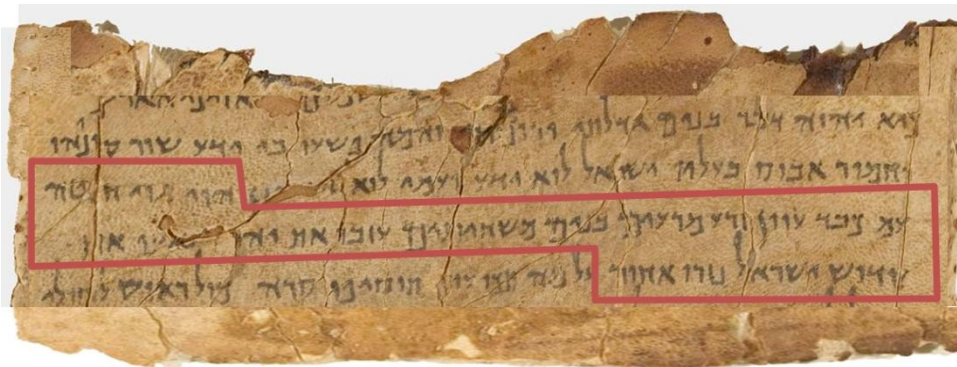 כיא יהוה דבר בנים גדלתי והמה פשעו בי ידע שור קונהו
וחמור אבוס בעליו ישראל לוא ידע ועמי לוא הוי גוי
עם כבד עוון זרע מרעים בנים משחיתים עזבו את
קדוש ישראל נזרו אחור על מה תכו עוד תוסיפו סרה כול ראוש לחולי